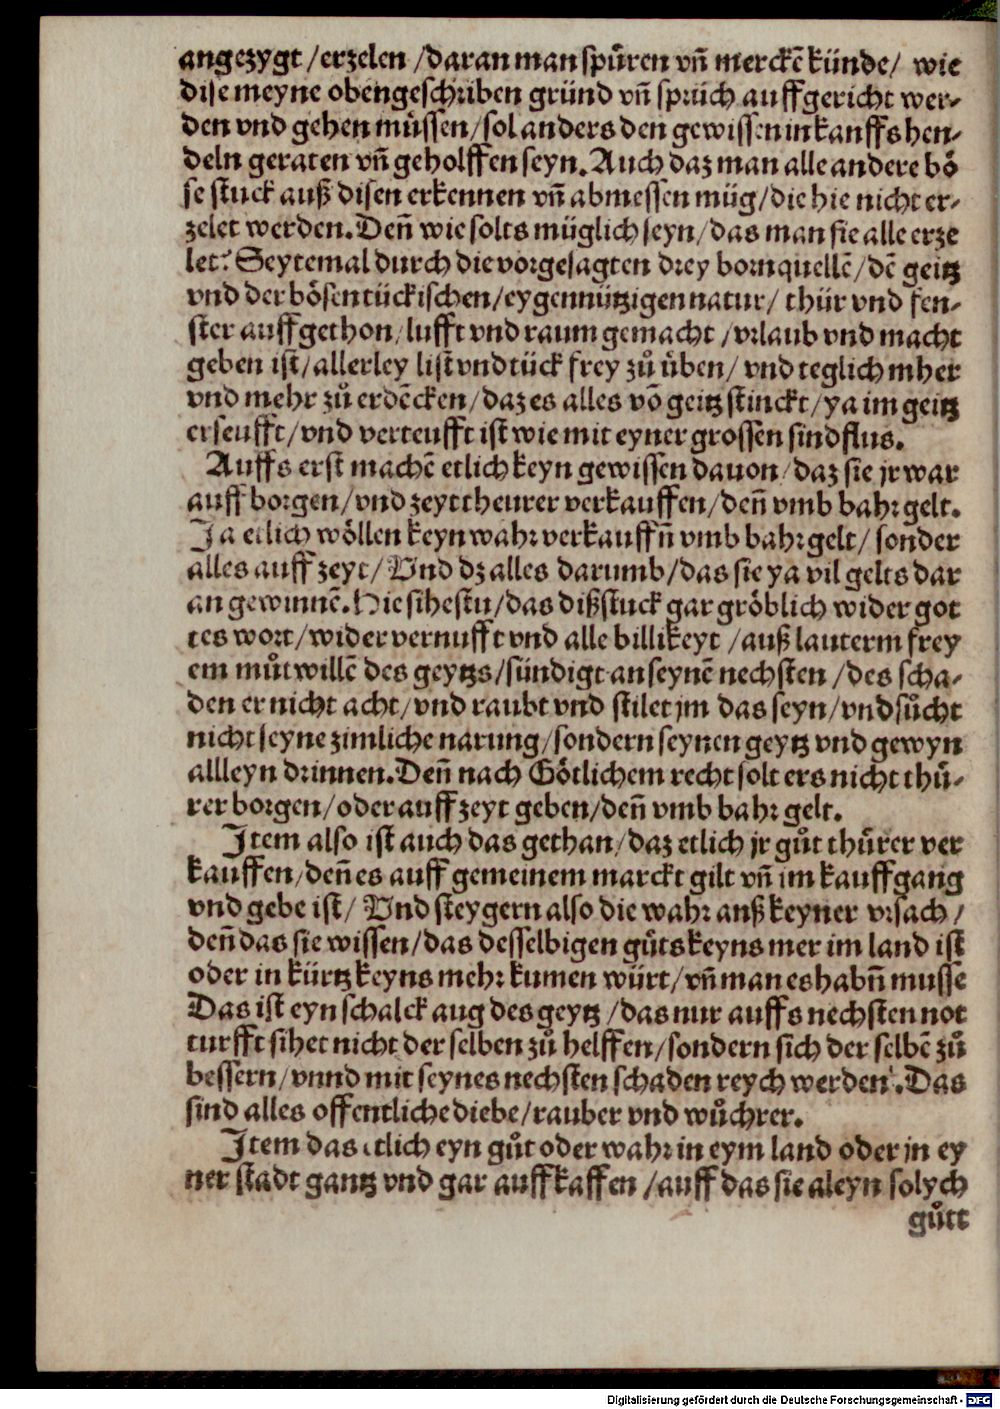 angezygt /erzelen /daran man spuͤren vñ merckē kuͤnde/ wie
dise meyne obengeschriben gruͤnd vñ spruͤch auffgericht wer-
den vnd gehen muͤssen/sol anders den gewissen in kauffs hen-
deln geraten vñ geholffen seyn. Auch daz man alle andere boͤ
se stuck auß disen erkennen vñ abmessen muͤg/die hie nicht er-
zelet werden. Deñ wie solts muͤglich seyn/das man sie alle erze
let? Seytemal durch die vorgesagten drey bornquellē/dē geitz
vnd der boͤsen tuͤckischen/eygennuͤtzigen natur/ thuͤr vnd fen-
ster auffgethon/lufft vnd raum gemacht /vrlaub vnd macht
geben ist/allerley list vnd tuͤck frey zuͦ uͤben/ vnd teglich mher
vnd mehr zuͦ erdēcken/daz es alles vō geitz stinckt/ya im geitz
erseufft/vnd verteufft ist wie mit eyner grossen sindflus.
Auffs erst machē etlich keyn gewissen dauon/daz sie jr war
auff borgen/vnd zeyt theurer verkauffen/deñ vmb bahr gelt.
Ja etlich woͤllen keyn wahr verkauffñ vmb bahr gelt/ sonder
alles auff zeyt/ Vnd dz alles darumb/das sie ya vil gelts dar
an gewinnē. Hie sihestu/das diß stuck gar groͤblich wider got
tes wort/wider vernufft vnd alle billikeyt /auß lauterm frey
em muͦtwillē des geytzs/suͤndigt an seynē nechsten /des scha-
den er nicht acht/vnd raubt vnd stilet jm das seyn/vnd suͦcht
nicht seyne zimliche narung/sondern seynen geytz vnd gewyn
allleyn drinnen. Deñ nach Goͤtlichem recht solt ers nicht thuͤ-
rer borgen/oder auff zeyt geben/deñ vmb bahr gelt.
Item also ist auch das gethan/daz etlich jr guͦt thuͤrer ver
kauffen/deñ es auff gemeinem marckt gilt vñ im kauffgang
vnd gebe ist/ Vnd steygern also die wahr anß keyner vrsach /
deñ das sie wissen/das desselbigen guͦts keyns mer im land ist
oder in kuͤrtz keyns mehr kumen wuͤrt/vñ man es habñ musse
Das ist eyn schalck aug des geytz /das nur auffs nechsten not
turfft sihet nicht der selben zuͦ helffen/sondern sich der selbē zuͦ
bessern/vnnd mit seynes nechsten schaden reych werden. Das
sind alles offentliche diebe/rauber vnd wuͦchrer.
Item das etlich eyn guͦt oder wahr in eym land oder jn ey
ner stadt gantz vnd gar auffkaffen /auff das sie aleyn solych
guͦtt
Digitalisierung gefördert durch die Deutsche Forschungsgemeinschaft - DFG